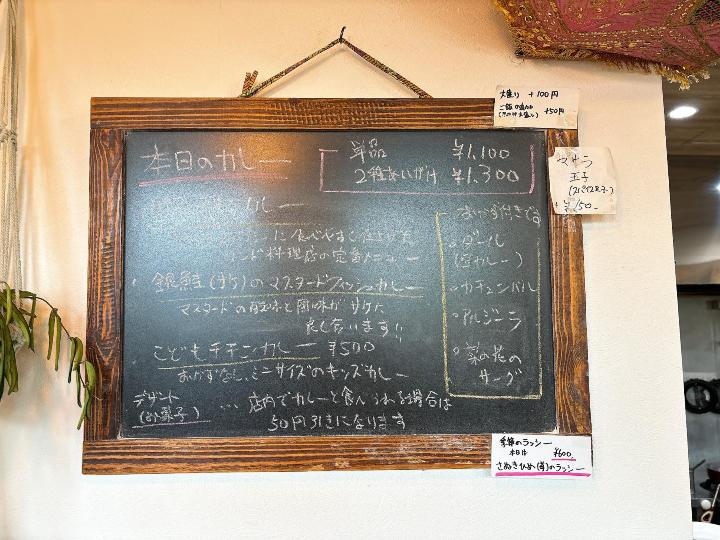 本日のカレー
単品 ¥1,100
2種あいがけ ¥1,300
カレー
に食べやすく仕上げた
インド料理店の定番メニュー
銀鮭(サケ)のマスタードフィッシュカレー
マスタードの酸味と風味がサケに
良く合います!!
こどもチキンカレー ¥500
おかずなし、ミニサイズのキッズカレー
デザート
(お菓子)
... 店内でカレーと食べられる場合は
50円引きになります
おかず付きです
・ダール
(豆カレー)
・カチュンバル
・アルジーラ
・菜の花の
サーグ
大盛り +100円
+50円
マサラ
玉子
+¥150-
季節のラッシー
本日は ¥600
さぬきひめ(苺)のラッシー